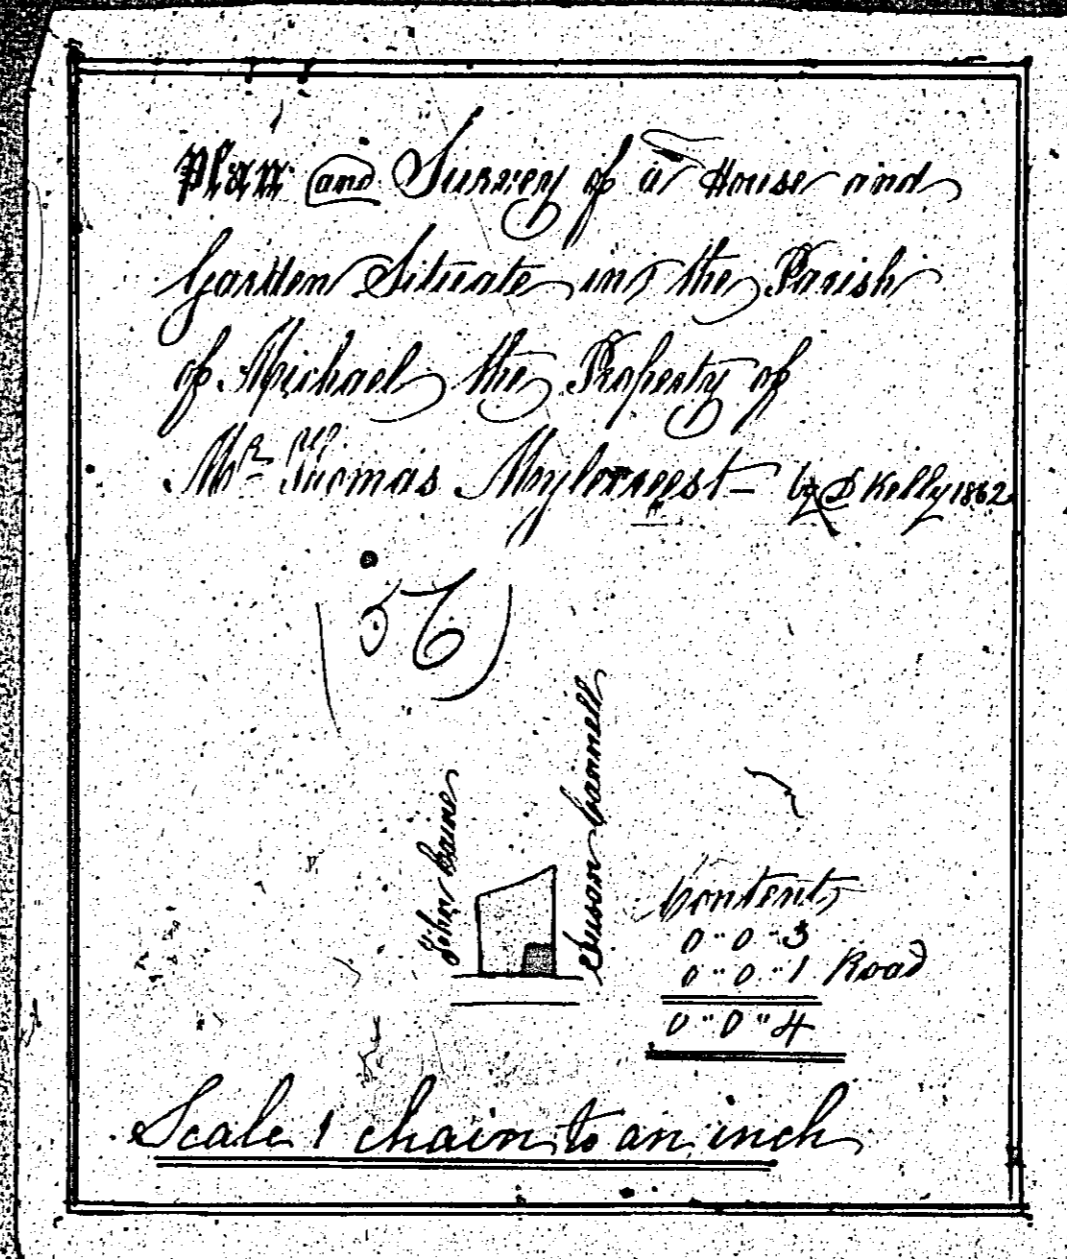 Plan and Survey of a House and
Garden Situate in the Parish
of Michael the Property of
Mr Thomas Moylorrest - by D Kelly 1862
(56)
John Caine
Susan Cannell
Contents
0 " 0 " 3
0 " 0 " 1 Road
0 " 0 " 4
Scale 1 chain to an inch